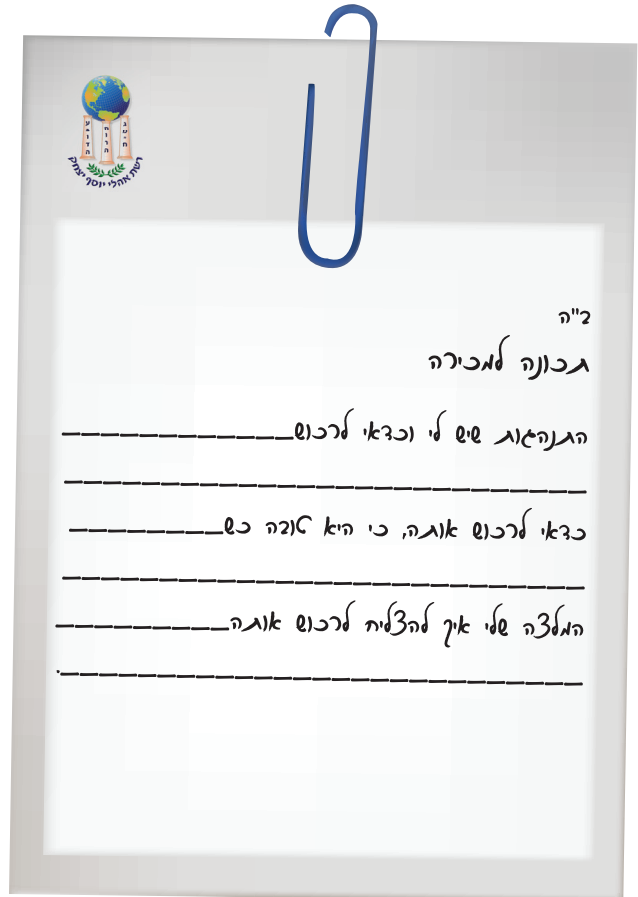 העיתיד
הווה
העבר
רשת אהלי יוסף יצחק
ב"ה
תכונה למכירה
התנהגות שיש לי וכדאי לרכוש____________
___________________________
כדאי לרכוש אותה, כי היא טובה כש________
___________________________
המלצה שלי איך להצליח לרכוש אותה_________
___________________________.